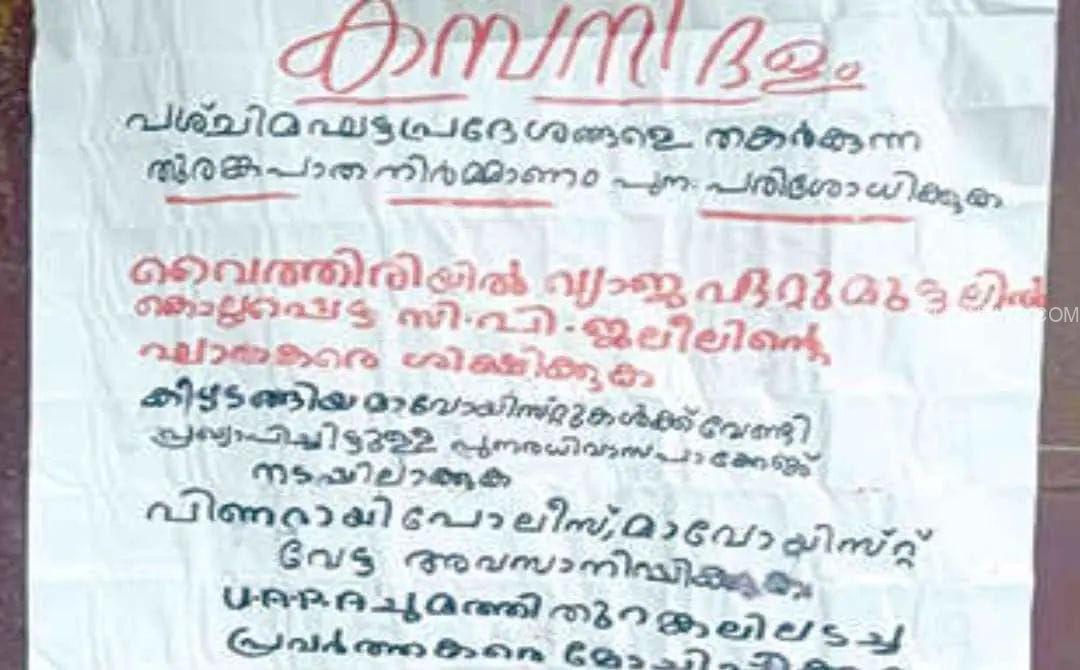 കമ്പനി ദളം
പശ്ചിമഘട്ടപ്രദേശങ്ങളെ തകർക്കുന്ന
തുരങ്കപാത നിർമ്മാണം പുനഃപരിശോധിക്കുക
വൈത്തിരിയിൽ വ്യാജഏറ്റുമുട്ടലിൽ
കൊല്ലപ്പെട്ട സി.പി.ജലീലിന്റെ
ഘാതകരെ ശിക്ഷിക്കുക
കീഴടങ്ങിയ മാവോയിസ്റ്റുകൾക്ക് വേണ്ടി
പ്രഖ്യാപിച്ചിട്ടുള്ള പുനരധിവാസപാക്കേജ്
നടപ്പിലാക്കുക
പിണറായി പോലീസ്, മാവോയിസ്റ്റ്
വേട്ട അവസാനിപ്പിക്കുക
U.A.P.A ചുമത്തി തുറങ്കലിലടച്ച
പ്രവർത്തകരെ
.COM